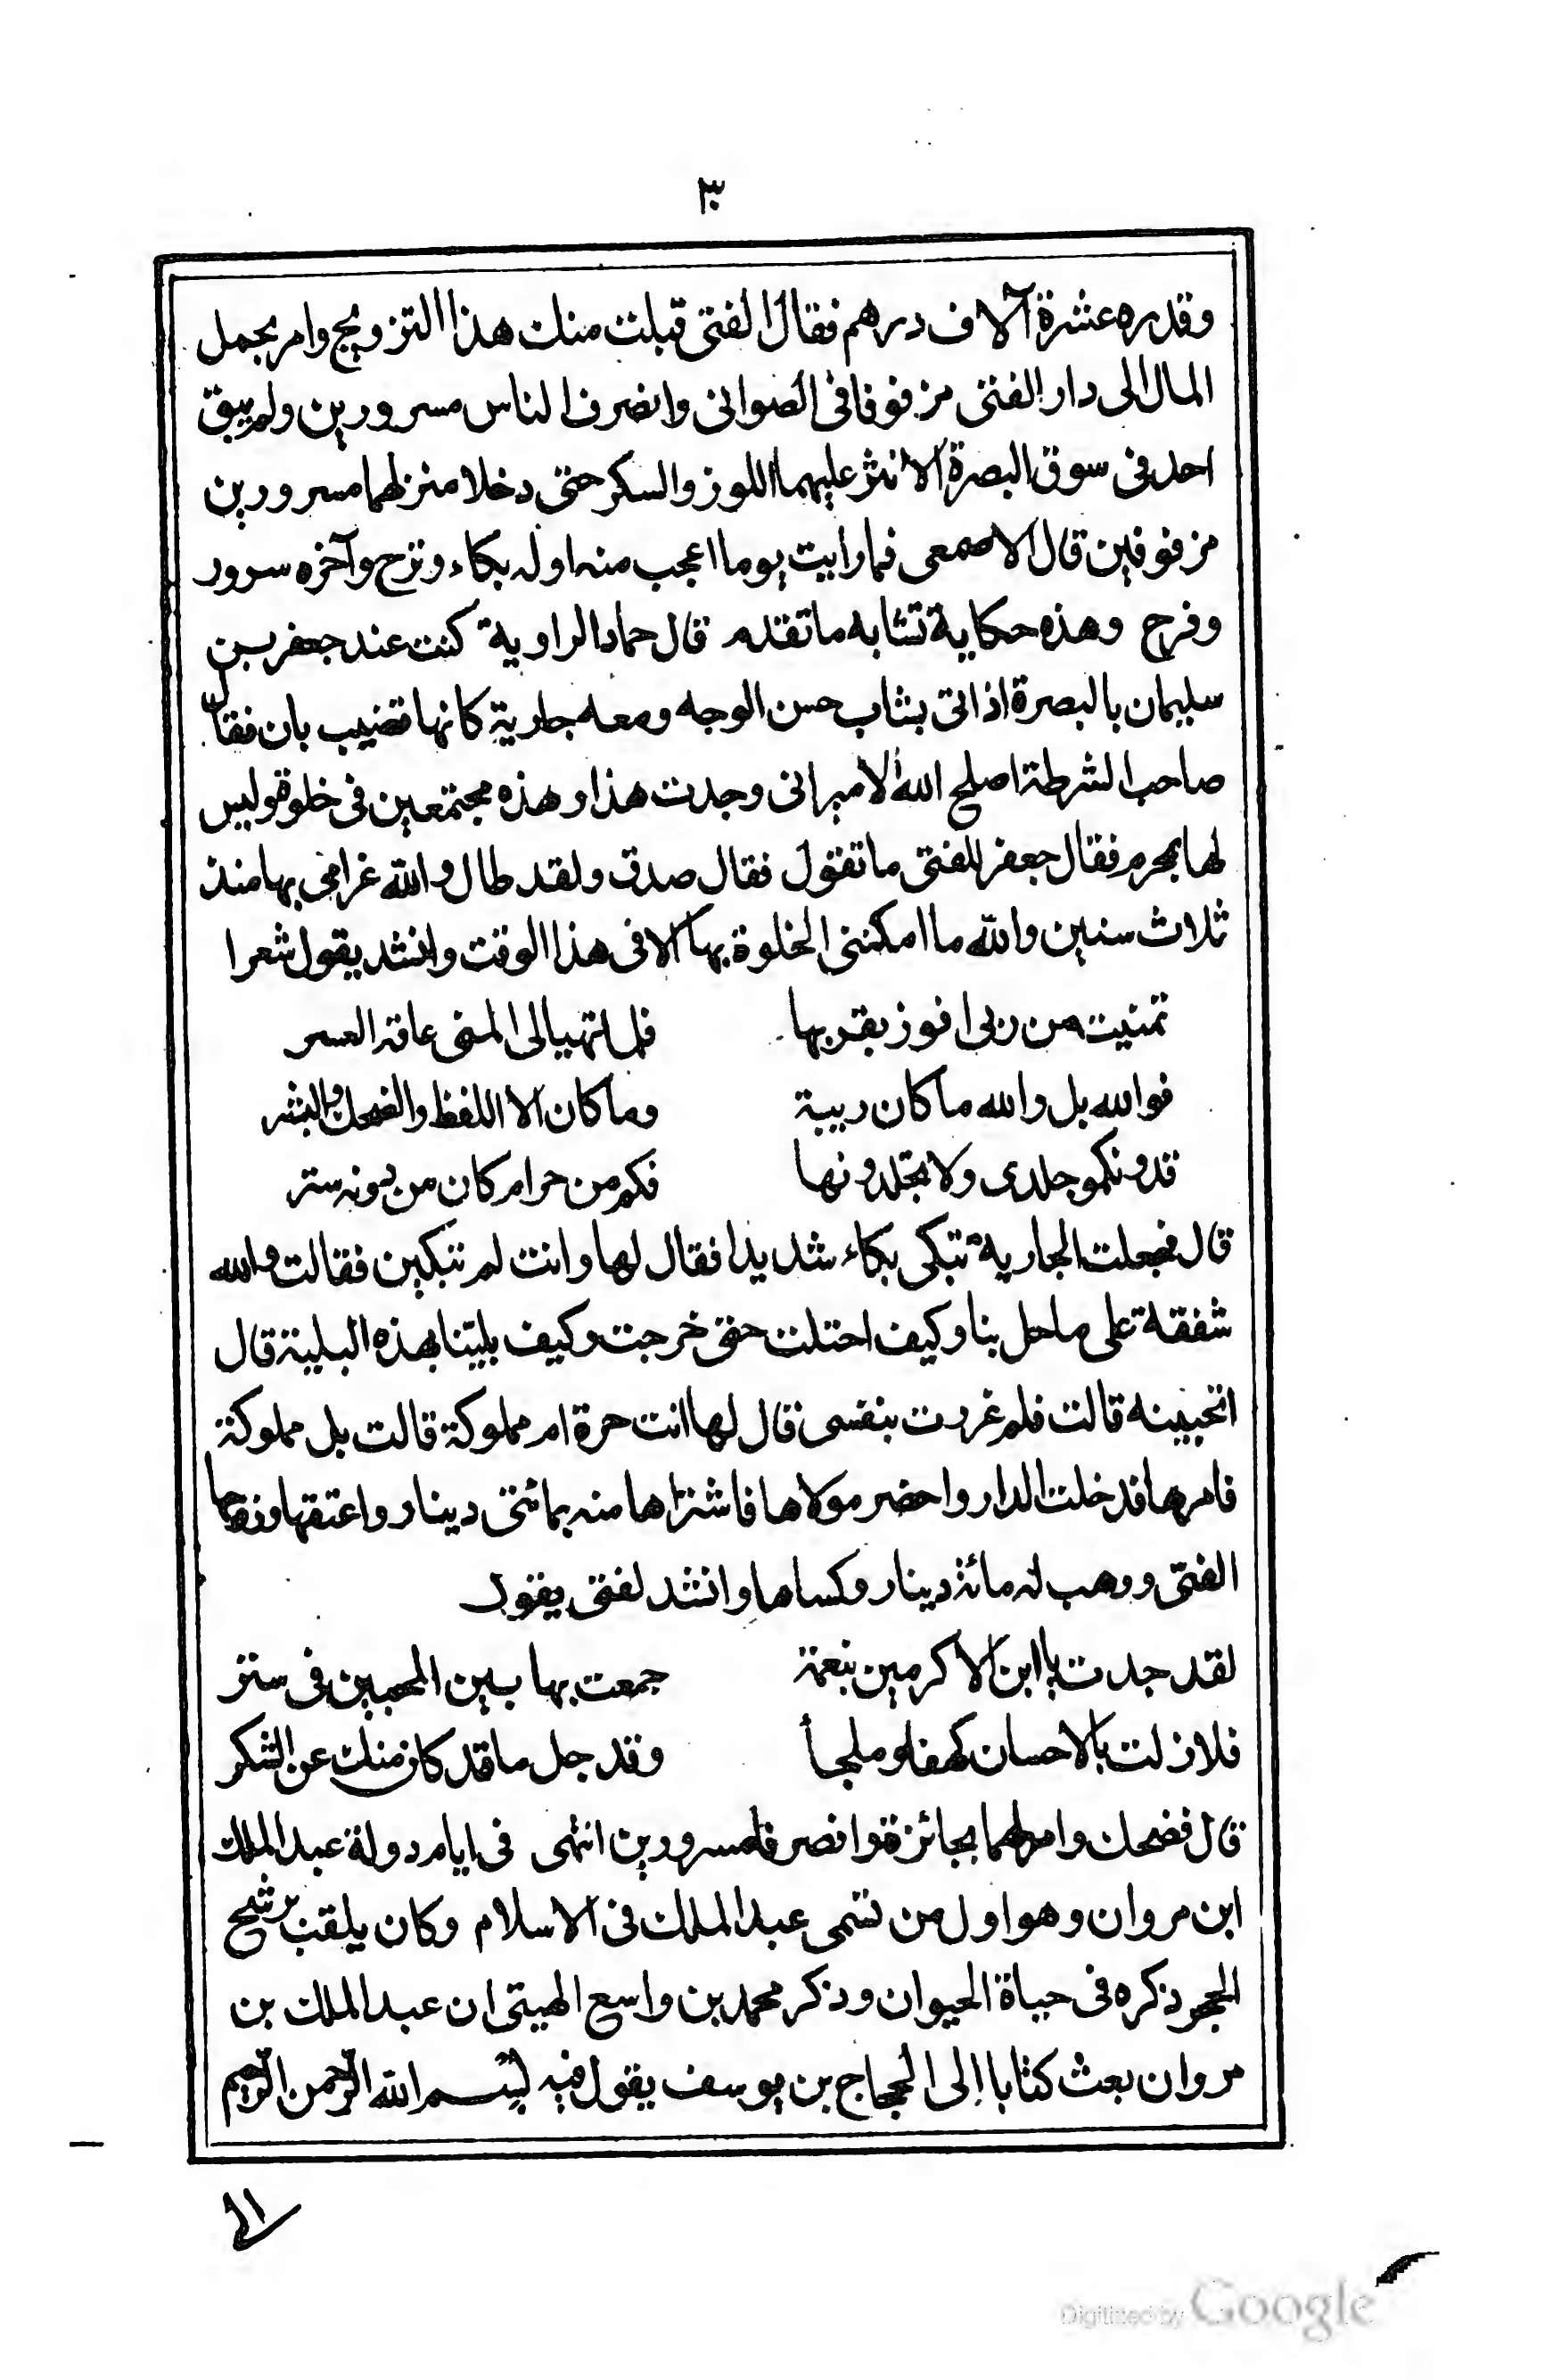 ٣٠
وقدره عشرة آلاف درهم فقال الفتى قبلت منك هذا التزويج وامر بحمل
المال الى دار الفتى مزفوفا فى الصوانى وانصرف الناس مسرورين ولم يبق
احد فى سوق البصرة الا نثر عليهما اللوز والسكر حتى دخلا منزلهما مسرورين
مزفوفين قال الاصمعى فما رايت يوما اعجب منه اوله بكاء وترح وآخره سرور
وفرح وهذه حكاية تشابه ما تقدم قال حماد الراوية كنت عند جعفر بن
سليمان بالبصرة اذ اتى بشاب حسن الوجه ومعه جارية كانها قضيب بان فقال
صاحب الشرطة اصلح الله الامير انى وجدت هذا وهذه مجتمعين فى خلوة وليس
لها بمحرم فقال جعفر للفتى ما تقول فقال صدق ولقد طال والله غرامى بها منذ
ثلاث سنين والله ما امكننى الخلوة بها الا فى هذا الوقت وانشد يقول شعرا
تمنيت من ربى افوز بقربها فلما تهيا لى المنى عاقه العسر
فوالله بل والله ما كان ريبة وما كان الا اللفظ والضحك والبشر
فدونكمو جلدى ولا تجلدونها فكم من حرام كان من دونه ستر
قال فجعلت الجارية تبكى بكاء شديدا فقال لها وانت لم تبكين فقالت والله
شفقة على ما حل بنا وكيف احتلت حتى خرجت وكيف بلينا بهذه البلية قال
اتحبينه قالت فلم غررت بنفسى قال لها انت حرة ام مملوكة قالت بل مملوكة
فامر بها فدخلت الدار واحضر مولاها فاشتراها منه بمائتى دينار واعتقها وزوجها
الفتى ووهب له مائة دينار وكساها وانشد لفتى يقول
لقد جدت يا ابن الاكرمين بنعمة جمعت بها بين المحبين فى ستر
فلا زلت بالاحسان كهفا وملجأ وقد جل ما قد كان منك عن الشكر
قال فضحك وامر لهما بجائزة وانصرفا مسرورين انتهى فى ايام دولة عبد الملك
ابن مروان وهو اول من تسمى عبد الملك فى الاسلام وكان يلقب برشح
الحجر ذكره فى حياة الحيوان وذكر محمد بن واسع الهيتى ان عبد الملك بن
مروان بعث كتابا إلى الحجاج بن يوسف يقول فيه بسم الله الرحمن الرحيم
Digitized by Google